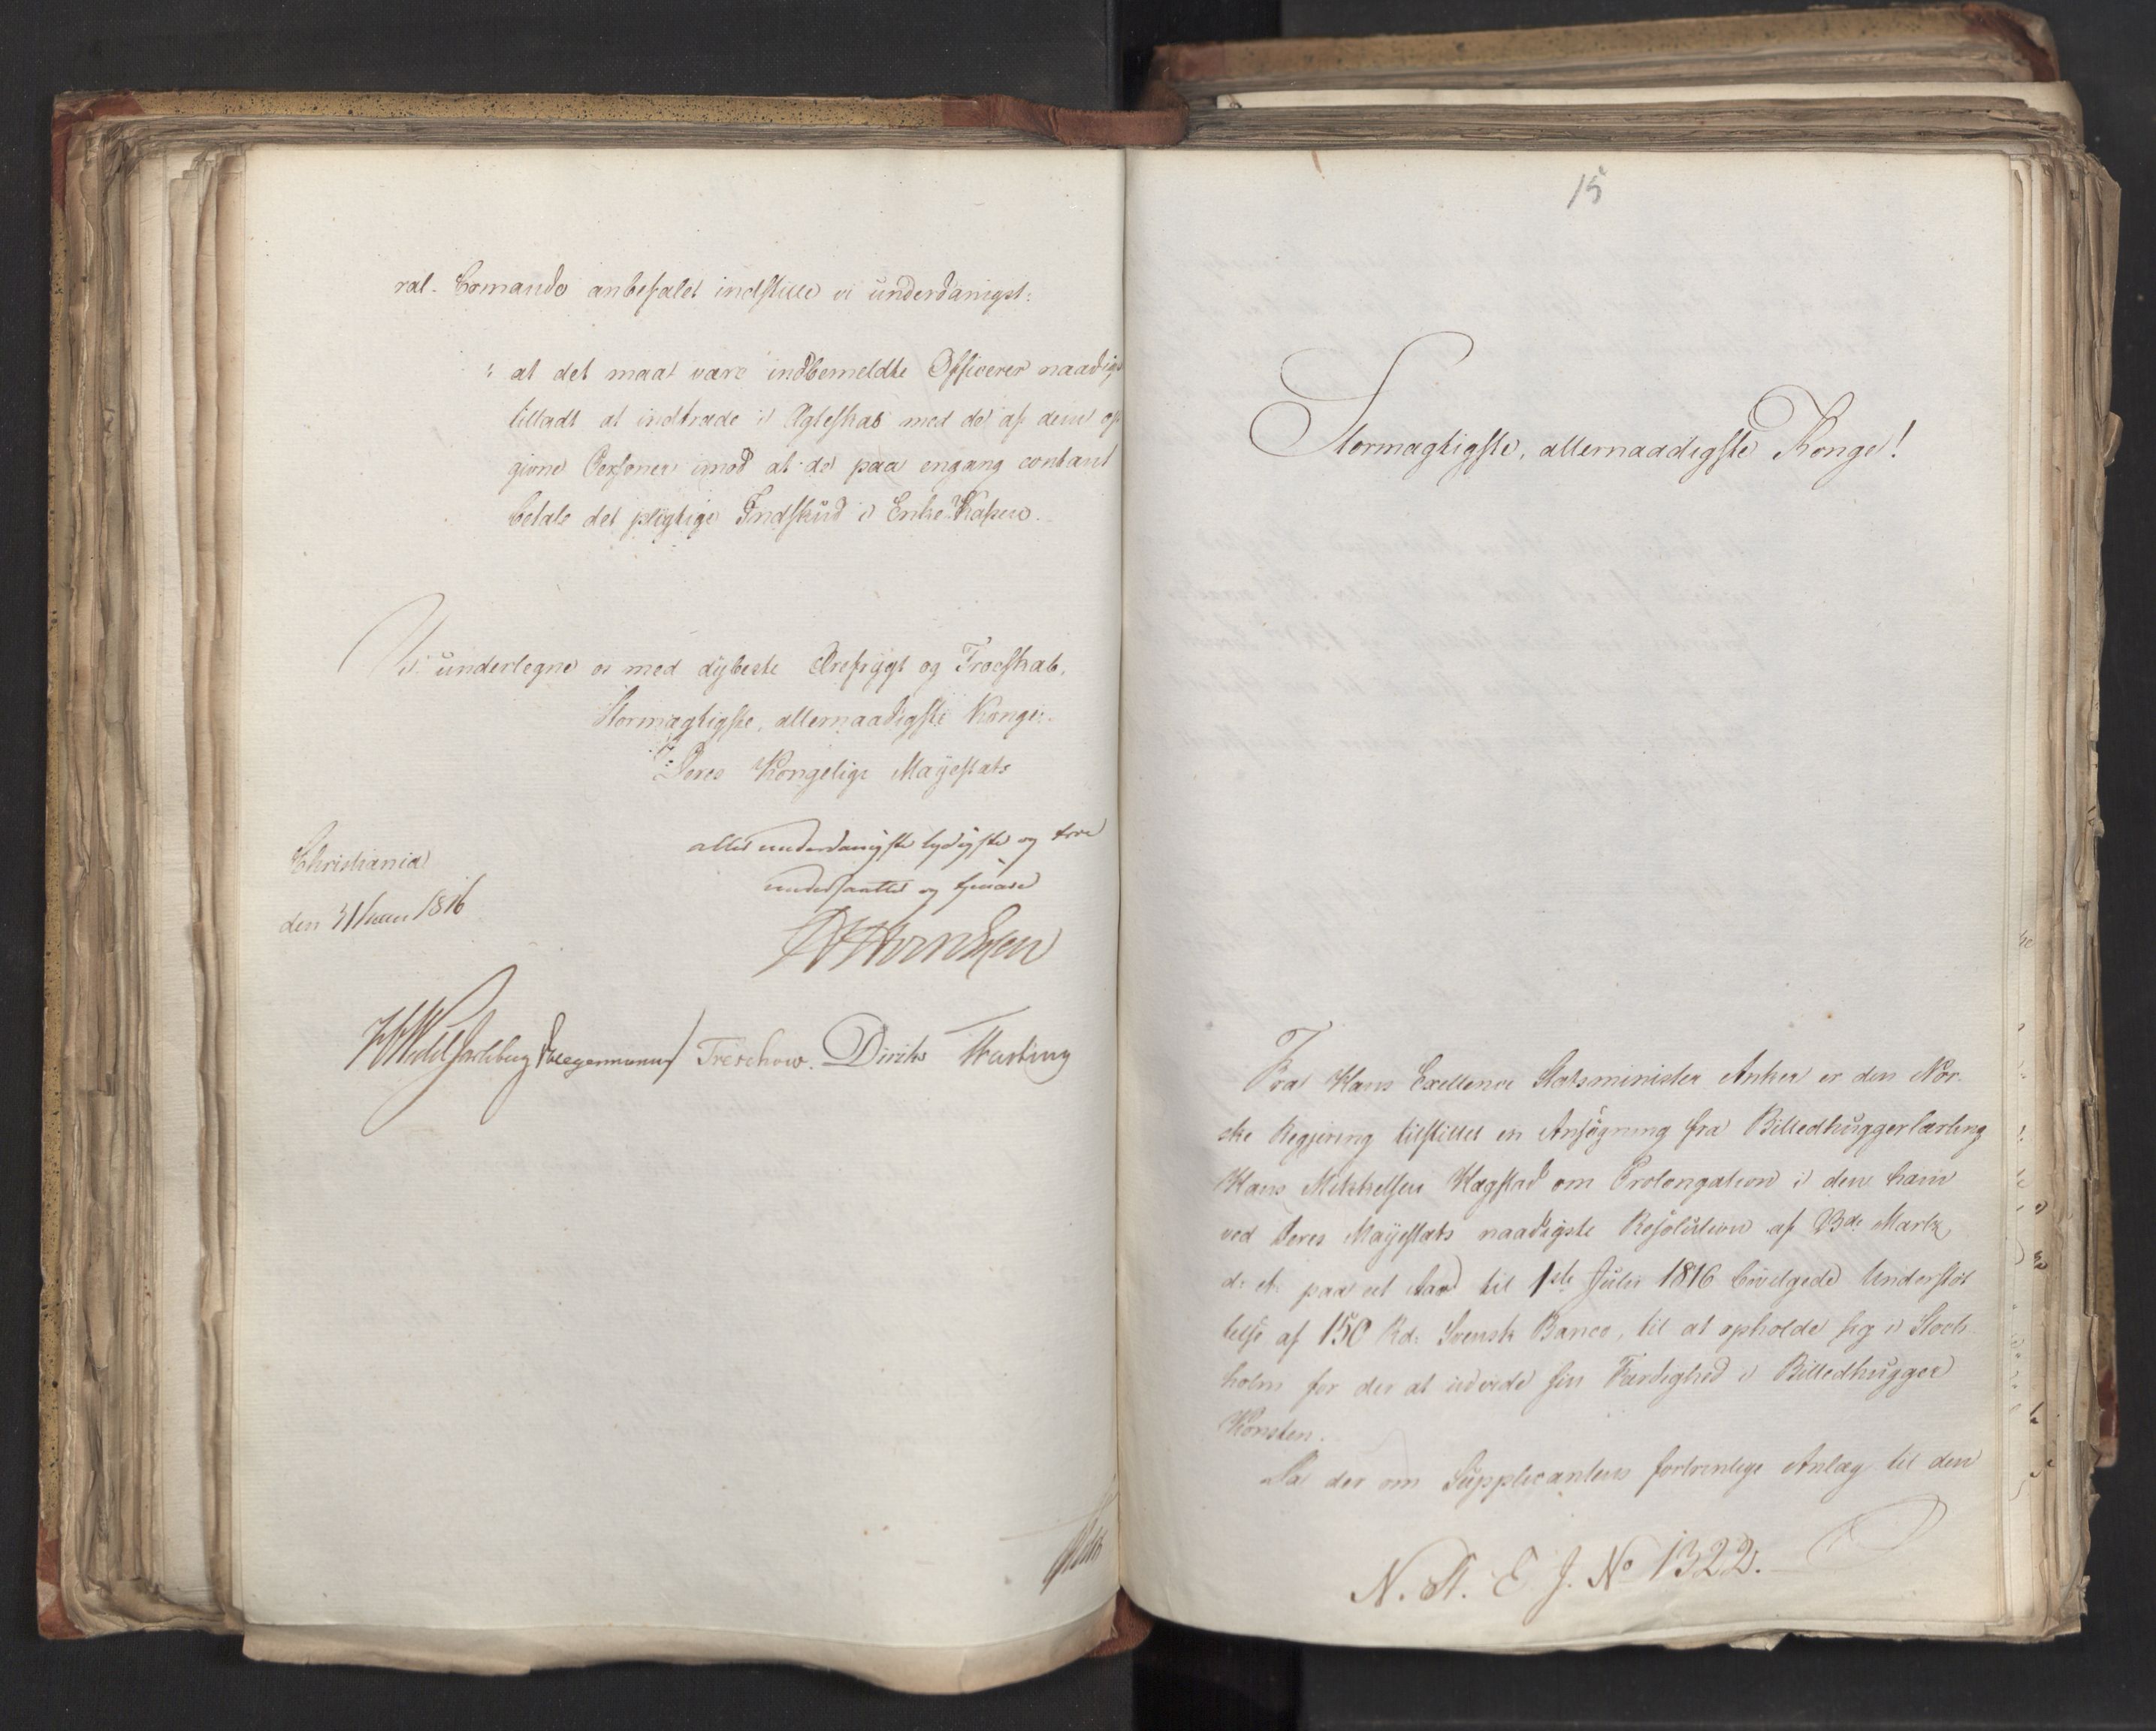 ral- Comando anbefalet indstille vi underdanigst:
: at det maat være indbemeldte Officerer naadigst
tilladt at indtræde i Ægteskab med de af dem op
givne Personer imod at de paa engang contant
betale det pligtige Indskud i Enke-Kassen.
Vi undertegne os med dybeste Ærefrygt og Troeskab,
Stormægtigste, allernaadigste Konge:
Deres Kongelige Mayestæts
allerunderdanigste lydigste og troe
undersaatter og tjenere
Christiania
den 31 1816
Wedel Jarlsberg Treschow. Diriks
15
Stormægtigste, allernaadigste Konge!
Fra Hans Exellence Statsminister Anker er den Nor-
ske Regjering tilstillet en Ansøgning fra Billedhuggerlærling
Hans Mikkelsen Hagstad om Prolongation i den ham
ved Deres Mayestæts naadigste Resolution af 13de Marts
d: A: paa eet Aar til 1ste Julii 1816 bevilgede Understøt
telse af 150 Rd: Svensk Banco, til at opholde sig i Stock
holm for der at udvide sin Færdighed i Billedhugger
Konsten.
Da der om Supplicantens fortrinlige Anlæg til den
N. St. E J. No 1322.